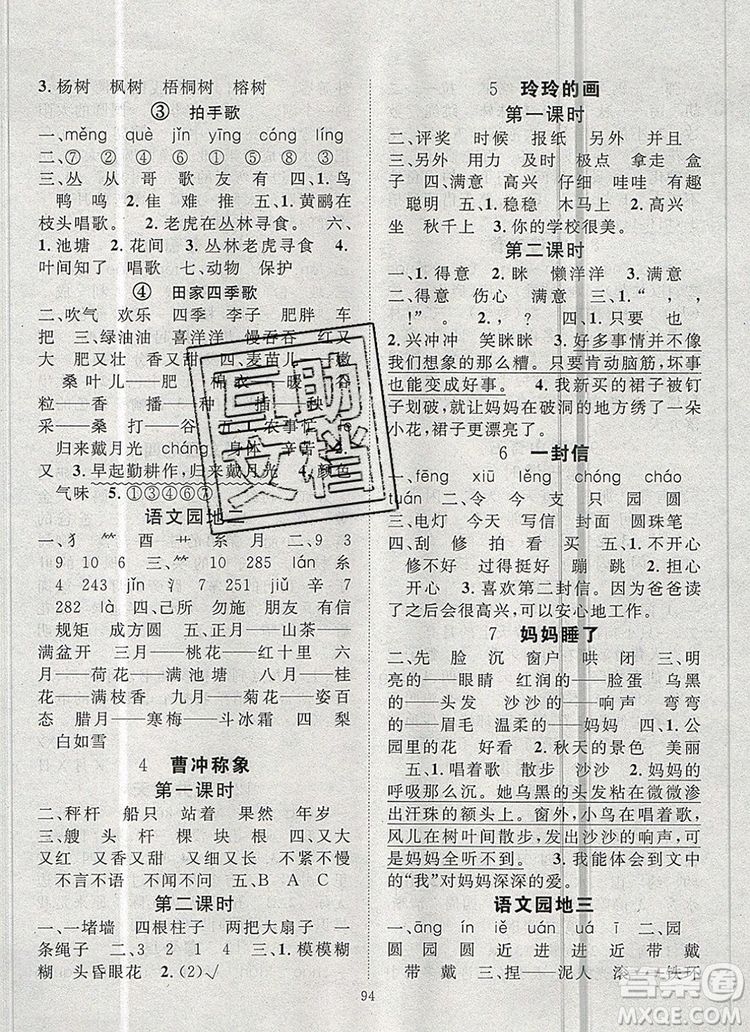 3.杨树 枫树 梧桐树 榕树
③ 拍手歌
一、měng què jǐn yīng cóng líng
二、⑦ ② ④ ① ④ ⑥
三、丛 从 哥 歌 友 有 四、1.鸟
鸭 鸣 2.佳 难 推 五、1.黄鹂在
枝头唱歌。 2.老虎在丛林寻食。 六、
1.池塘 2.花间 3.丛林老虎寻食 4.
叶间知了 唱歌 七、动物 保护
④ 田家四季歌
二、吹气 欢乐 四季 李子 肥胖 车
把 三、绿油油 喜洋洋 慢吞吞 红又
大 肥又大 香又甜 四、麦苗儿——嫩
桑叶儿——肥
粒——香 播——种 秧
采——桑 打——谷
归来戴月光 cháng 身体 辛苦
劝 3.早起勤耕作,归来戴月光 4.颜色
气味 5.①③④⑥⑤
语文园地二
一、犭 ⺮ 酉 艹 系 月 二、9 3
9 10 6 三、⺮ 笑 酉 酸 4 糸
4 243 jǐn 氵 7 251 jiāng 辛 7
282 là 四、己所 勿施 朋友 有信
规矩 成方圆 五、正月——山茶——
满盆开 三月——桃花——红十里
六月——荷花——满池塘 八月——桂
花——满枝香 九月——菊花——姿百
态 腊月——寒梅——斗冰霜 四 梨
白如雪
4 曹冲称象
第一课时
二、秤杆 船只 站着 果然 年岁
三、艘 头 杆 棵 块 根 四、又大
又红 又香又甜 又细又长 又黑又亮
不言不语 不闻不问 五、B A C
第二课时
一、一堵墙 四根柱子 两把大扇子 一
条绳子 二、大 重 三、1.模模糊
糊 头昏眼花 2.(2)√
5 玲玲的画
第一课时
二、评奖 时候 报纸 另外 并且
三、另外 用力 及时 极点 拿走 盒
子 四、满意 高兴 仔细 哇哇 有趣
聪明 五、1.稳稳 木马上 2.高兴
坐 秋千上 3.你的学校很美。
第二课时
一、1.得意 2.眯 懒洋洋 3.满意
二、得意 伤心 满意 三、: “ ,
! ” ? 。 , 。 四、1.P 片
2.兴冲冲 笑眯眯 3.好多事情并不像我
们想象的那么糟。只要肯动脑筋,坏事
也能变成好事。 4.我新买的裙子被钉
子划破了,就让妈妈在破洞的地方绣了一朵
小花,裙子更漂亮了。
6 一封信
一、fēng xiū lěng chóng cháo
tuán 二、令 今 支 只 园 圆
三、电灯 今天 写信 封面 圆珠笔
四、刮 修 拍 看 买 五、1.不开心
修不好 过得挺好 蹦 跳 2.担心
开心 3.喜欢第二封信。因为爸爸读了
之后会很高兴,可以安心地工作。
7 妈妈睡了
二、先 脸 沉 窗户 哄 闭 三、明
亮的——眼睛 红润的——脸蛋 乌黑
的——头发 沙沙的——响声 弯弯
的——眉毛 温柔的——妈妈 四、1.公
园里的花 好看 2.秋天的景色 美丽
五、1.唱着歌 散步 沙沙 2.妈妈的
呼吸那么沉。她乌黑的头发粘在微微渗
出汗珠的额头上。窗外,小鸟在唱着歌,
风儿在树叶间散步,发出沙沙的响声,可
是妈妈全听不到。 3.我能体会到文中
的“我”对妈妈深深的爱。
语文园地三
一、āng ín iě uán uá ī 二、园
圆 园 圆 近 进 进 近 带 戴
带 戴 三、捏——泥人 滚——铁环
94
互助
文档
答案圈
MXQE.COM